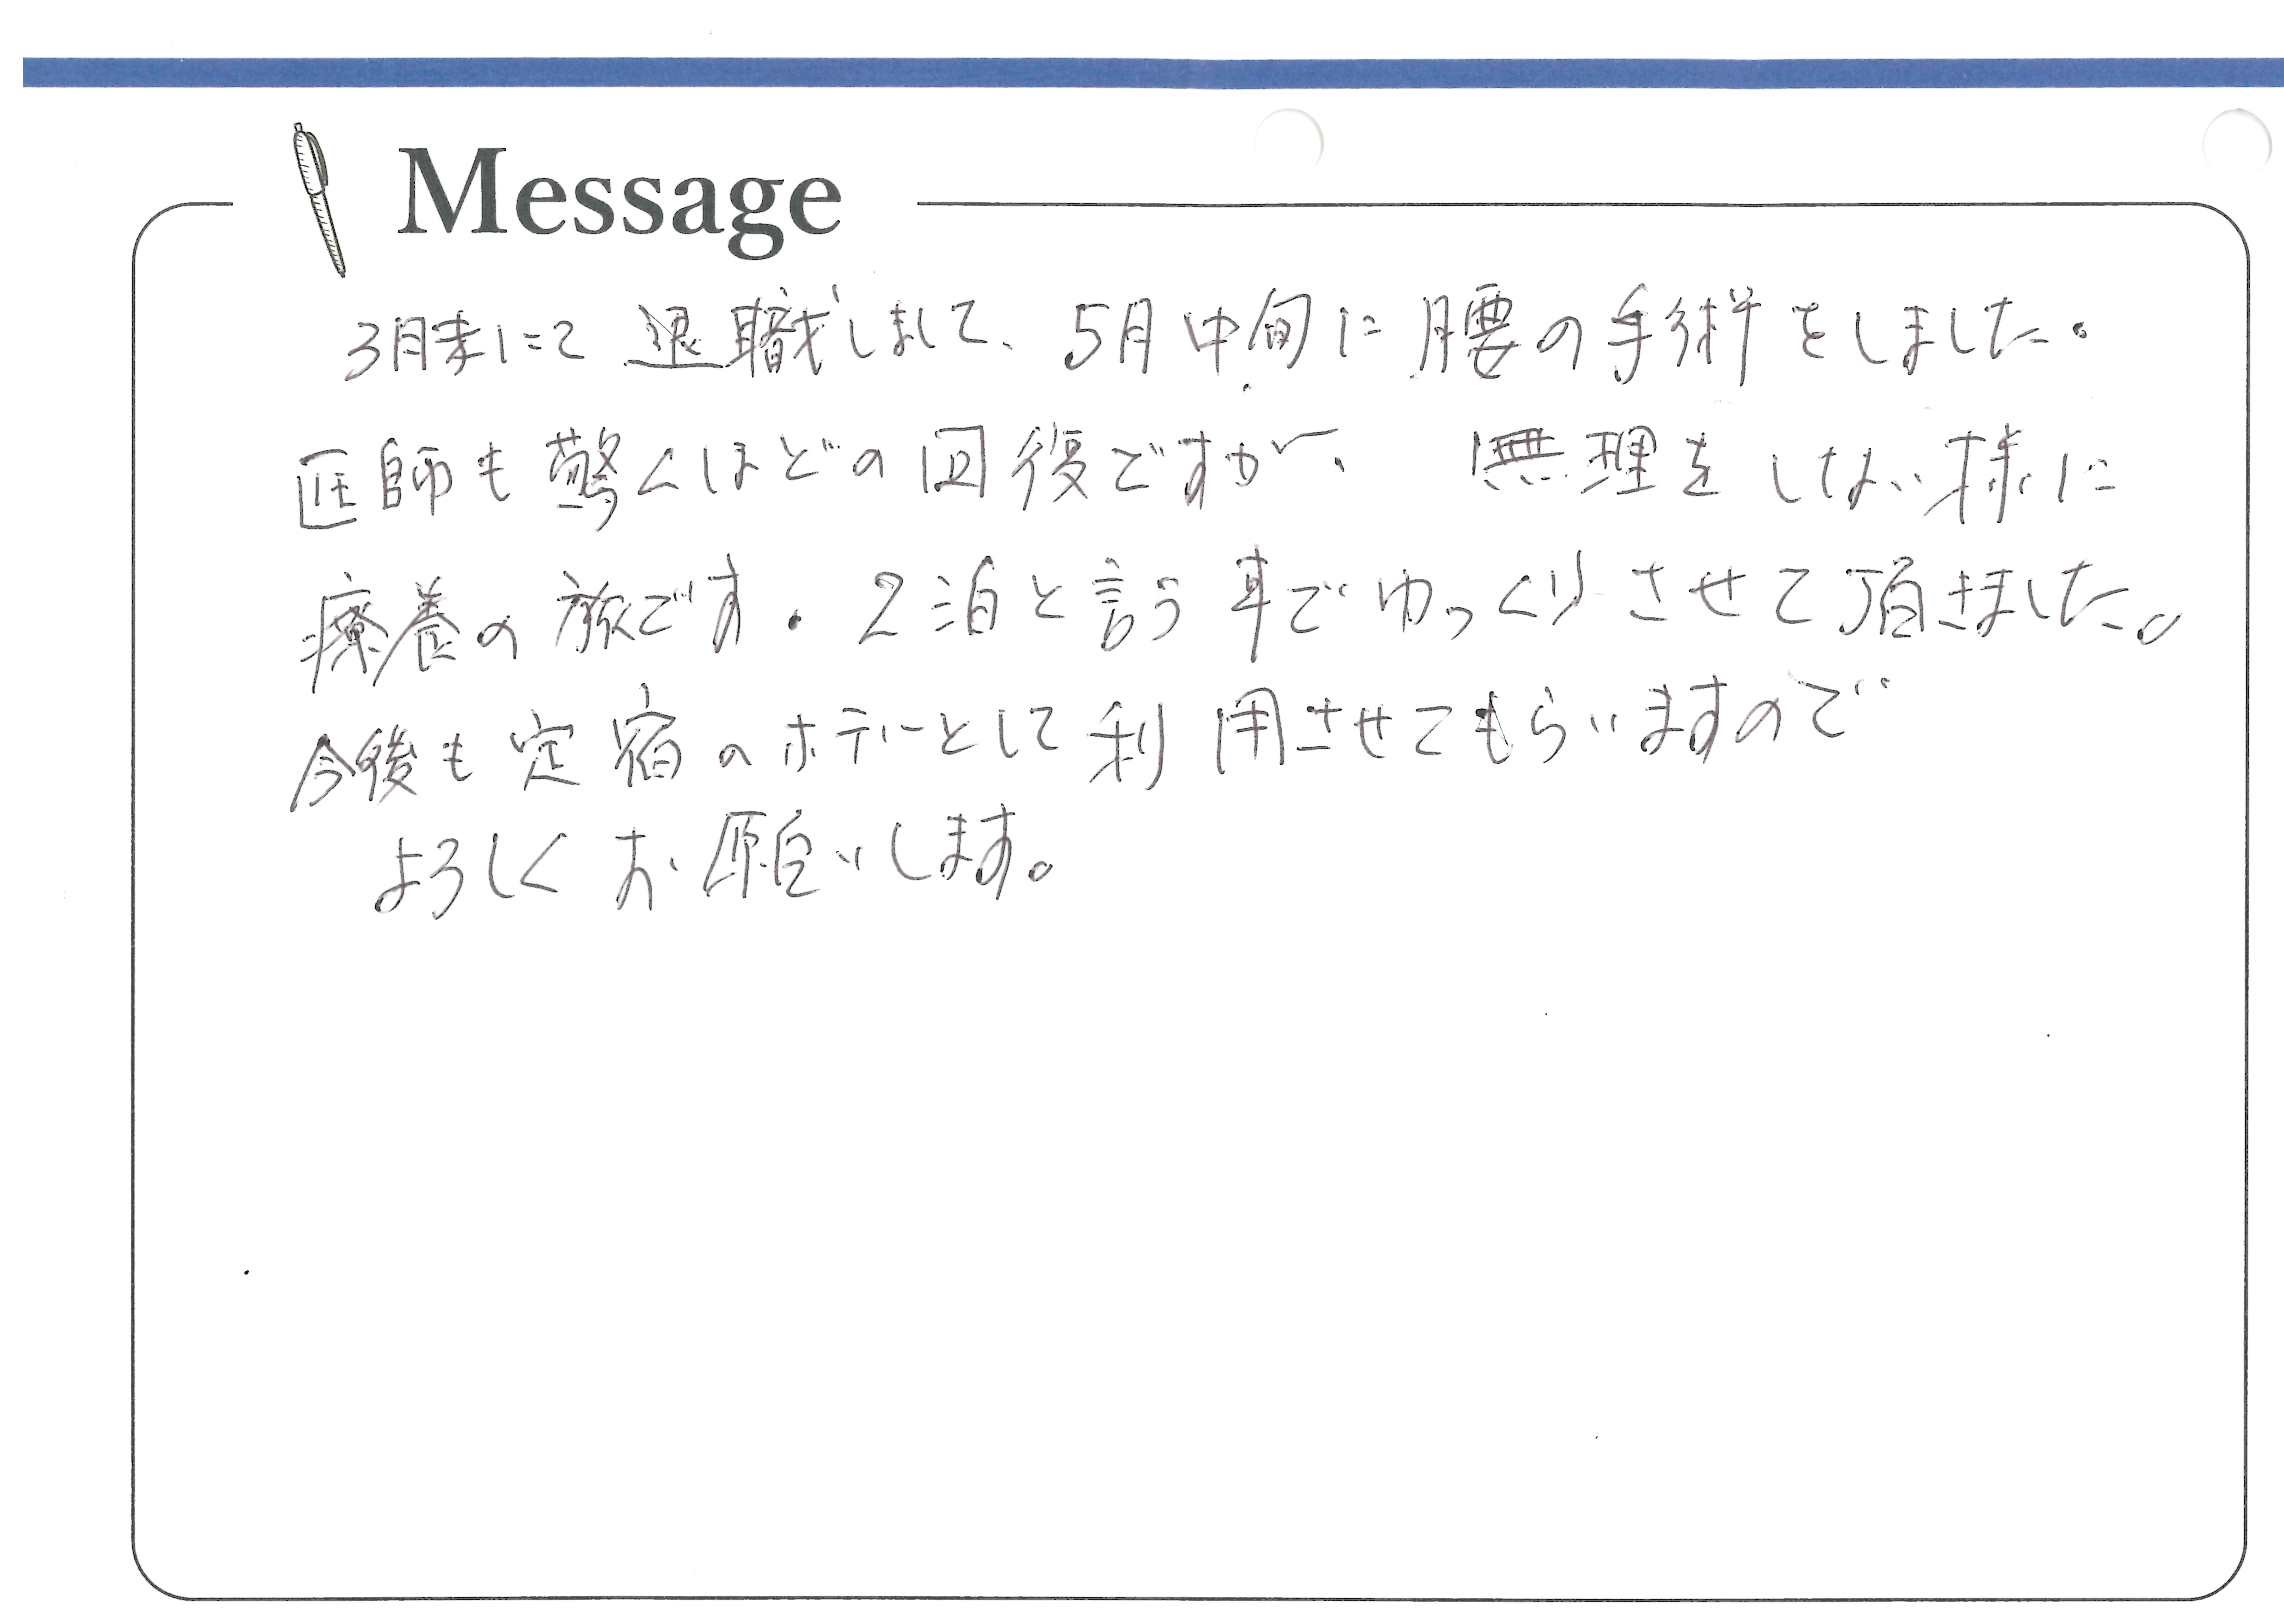 Message
3月末にて退職しまして、5月中旬に腰の手術をしました。
医師も驚くほどの回復ですが、無理をしない様に
療養の旅です。2泊と言う事でゆっくりさせて頂きました。
今後も定宿のホテルとして利用させてもらいますので
よろしくお願いします。